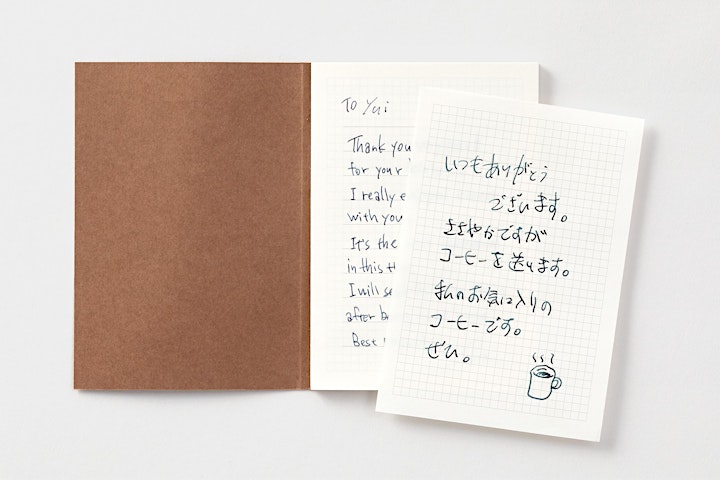 To Yui
Thank you
for your
I really e
with you
It's the
in this
I will s
after b
Best
いつもありがとう
ございます。
ささやかですが
コーヒーを送ります。
私のお気に入りの
コーヒーです。
ぜひ。